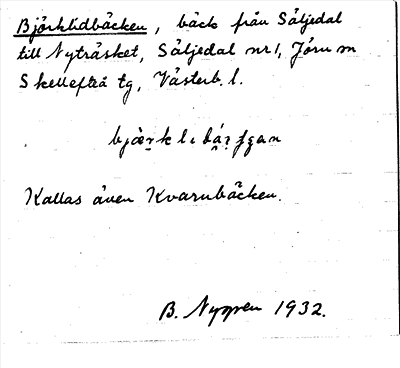 Björklidbäcken, bäck från Säljedal
till Nyträsket, Säljedal nr 1, Jörn sn
Skellefteå tg, Västerb. l.
Kallas även Kvarnbäcken.
B. Nygren 1932.